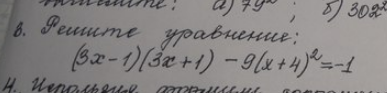 а) 79² ; б) 302²
3. Решите уравнение:
(3x-1)(3x+1) - 9(x+4)² = -1
4. Используя